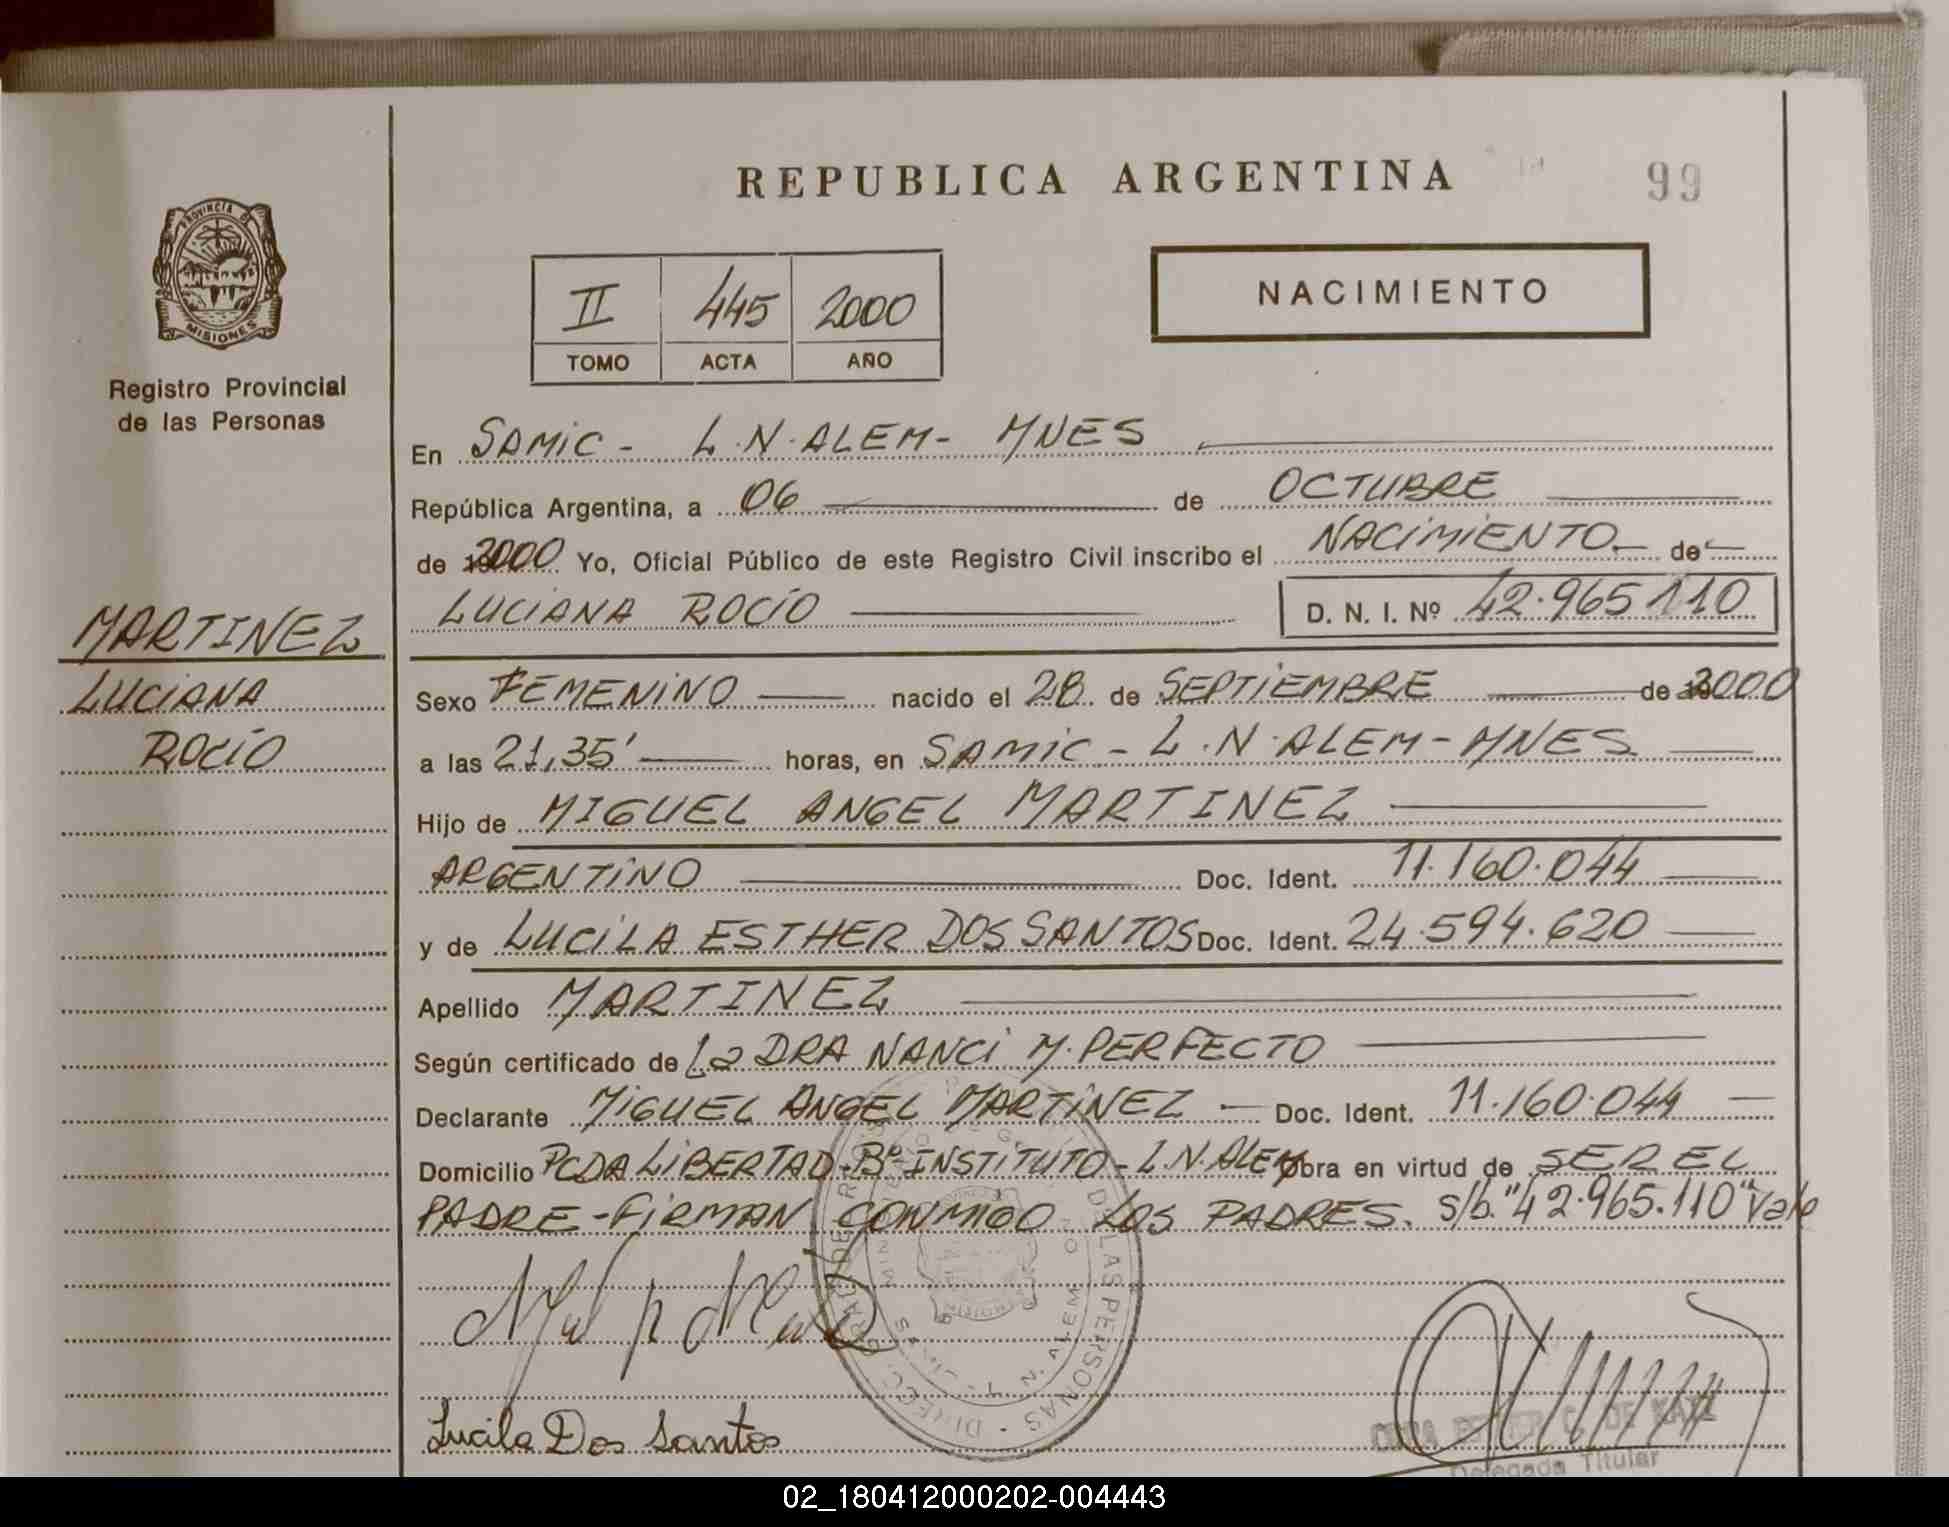 REPUBLICA ARGENTINA
99
PROVINCIA DE
MISIONES
Registro Provincial
de las Personas
II 445 2000
TOMO ACTA AÑO
NACIMIENTO
En SAMIC - L.N.ALEM - MNES
República Argentina, a 06 de OCTUBRE
de 2000 Yo, Oficial Público de este Registro Civil inscribo el NACIMIENTO de
LUCIANA ROCÍO D. N. I. Nº 42.965110
MARTINEZ
LUCIANA
ROCÍO
Sexo FEMENINO nacido el 28 de SEPTIEMBRE de 2000
a las 21,35' horas, en SAMIC - L.N.ALEM - MNES
Hijo de MIGUEL ANGEL MARTINEZ
ARGENTINO Doc. Ident. 11.160.044
y de LUCILA ESTHER DOS SANTOS Doc. Ident. 24.594.620
Apellido MARTINEZ
Según certificado de La DRA NANCI M. PERFECTO
Declarante MIGUEL ANGEL MARTINEZ Doc. Ident. 11.160.044
Domicilio PCDA LIBERTAD - Bº INSTITUTO - L.N.ALEM Obra en virtud de SER EL
PADRE - FIRMAN CONMIGO LOS PADRES. s/b. "42.965.110" Vale
DE LAS PERSONAS
L. N. ALEM
Lucila Dos Santos
DE KATZ
Delegada Titular
02_180412000202-004443